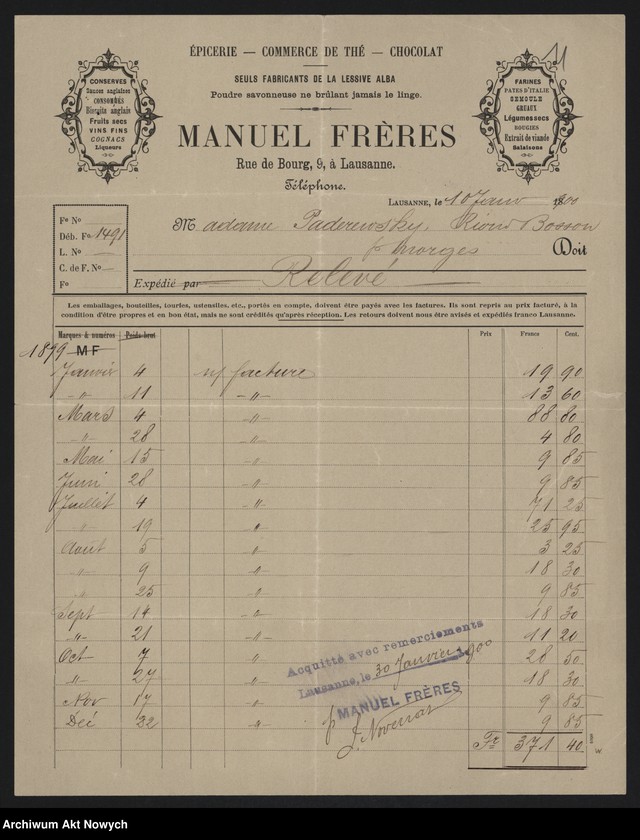 ÉPICERIE — COMMERCE DE THÉ — CHOCOLAT
11
SEULS FABRICANTS DE LA LESSIVE ALBA
Poudre savonneuse ne brûlant jamais le linge.
CONSERVES
Sauces anglaises
CONSOMMÉS
Biscuits anglais
Fruits secs
VINS FINS
COGNACS
Liqueurs
FARINES
PATES D'ITALIE
SEMOULE
GRUAUX
Légumes secs
BOUGIES
Extrait de viande
Salaisons
MANUEL FRÈRES
Rue de Bourg, 9, à Lausanne.
Téléphone.
LAUSANNE, le 10 Janv 1900
Fe No
Déb. Fo 1491
L. No
C. de F. No
Fo
Madame Paderewsky, Riond Bosson
p. Morges
Doit
Expédié par
Relevé
Les emballages, bouteilles, touries, ustensiles, etc., portés en compte, doivent être payés avec les factures. Ils sont repris au prix facturé, à la
condition d'être propres et en bon état, mais ne sont crédités qu'après réception. Les retours doivent nous être avisés et expédiés franco Lausanne.
Marques & numéros Poids brut Prix Francs Cent.
1899 M F
Janvier 4 n/ facture 19 90
-"- 11 -"- 13 60
Mars 4 -"- 88 80
-"- 28 -"- 4 80
Mai 15 -"- 9 85
Juin 28 -"- 9 85
Juillet 4 -"- 71 25
" 19 " 25 95
Août 5 -"- 3 25
-"- 9 -"- 18 30
" 25 -"- 9 85
Sept 14 -"- 18 30
-"- 21 -"- 11 20
Oct 7 " 28 50
-"- 27 " 18 30
Nov 17 -"- 9 85
Déc 22 -"- 9 85
Fr 371 40
Acquitté avec remerciements
Lausanne, le 30 Janvier 1900
MANUEL FRÈRES
p J.
Archiwum Akt Nowych